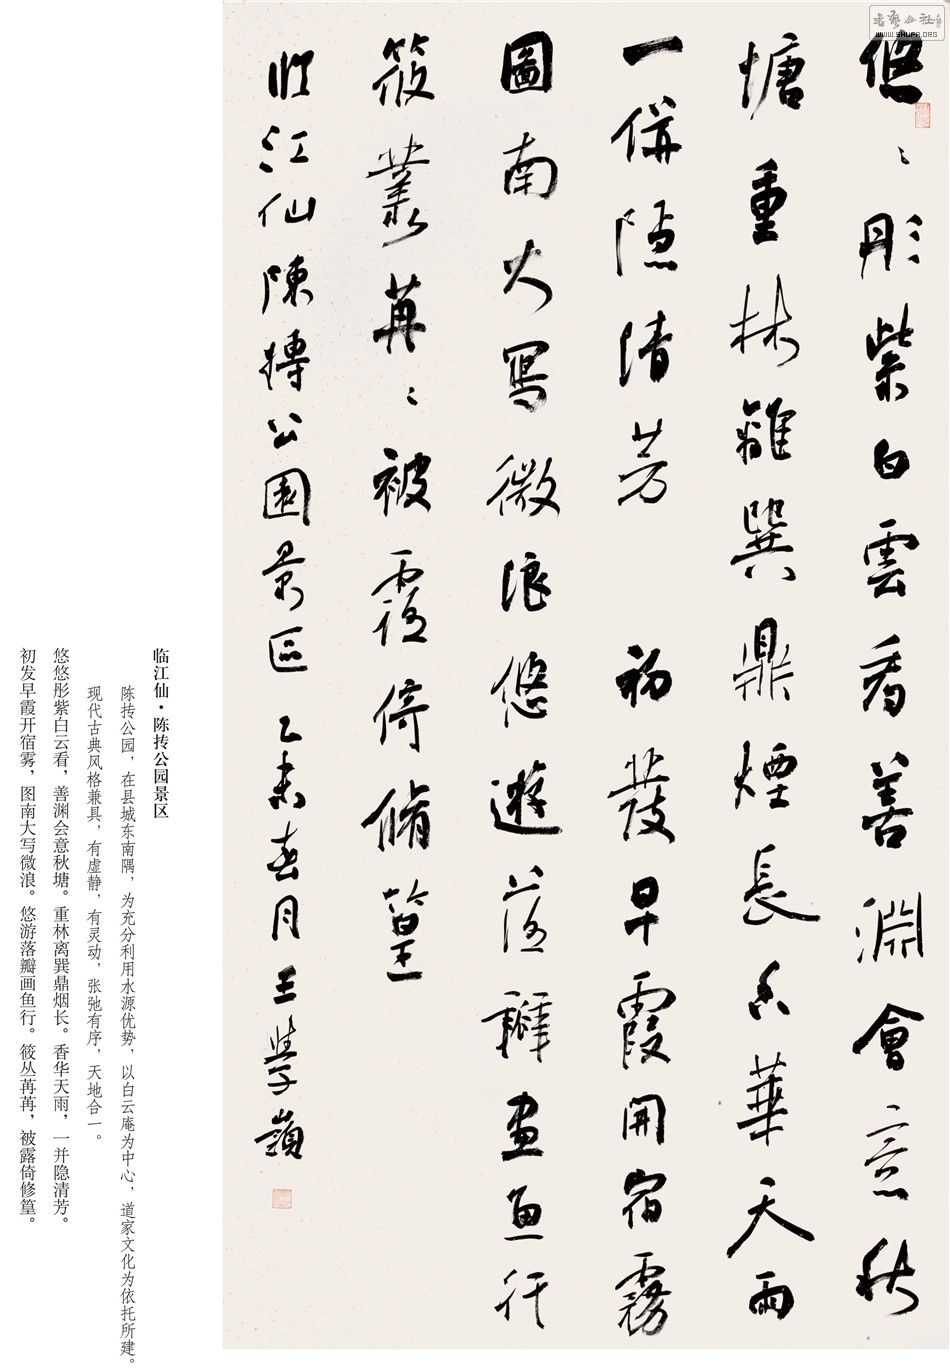 悠〻彤紫白雲看善淵會意秋
塘重林離巽鼎煙長香華天雨
一併隐清芳 初發早霞開宿霧
圖南大寫微浪悠遊落瓣畫魚行
筱叢苒〻被露倚脩篁
临江仙陳摶公園景区 乙未春月王学嶺
临江仙·陈抟公园景区
陈抟公园，在县城东南隅，为充分利用水源优势，以白云庵为中心，道家文化为依托所建。
现代古典风格兼具，有虚静，有灵动，张弛有序，天地合一。
悠悠彤紫白云看，善渊会意秋塘。重林离巽鼎烟长。香华天雨，一并隐清芳。
初发早霞开宿雾，图南大写微浪。悠游落瓣画鱼行。筱丛苒苒，被露倚修篁。
書藝公社
WWW.SHUFA.ORG